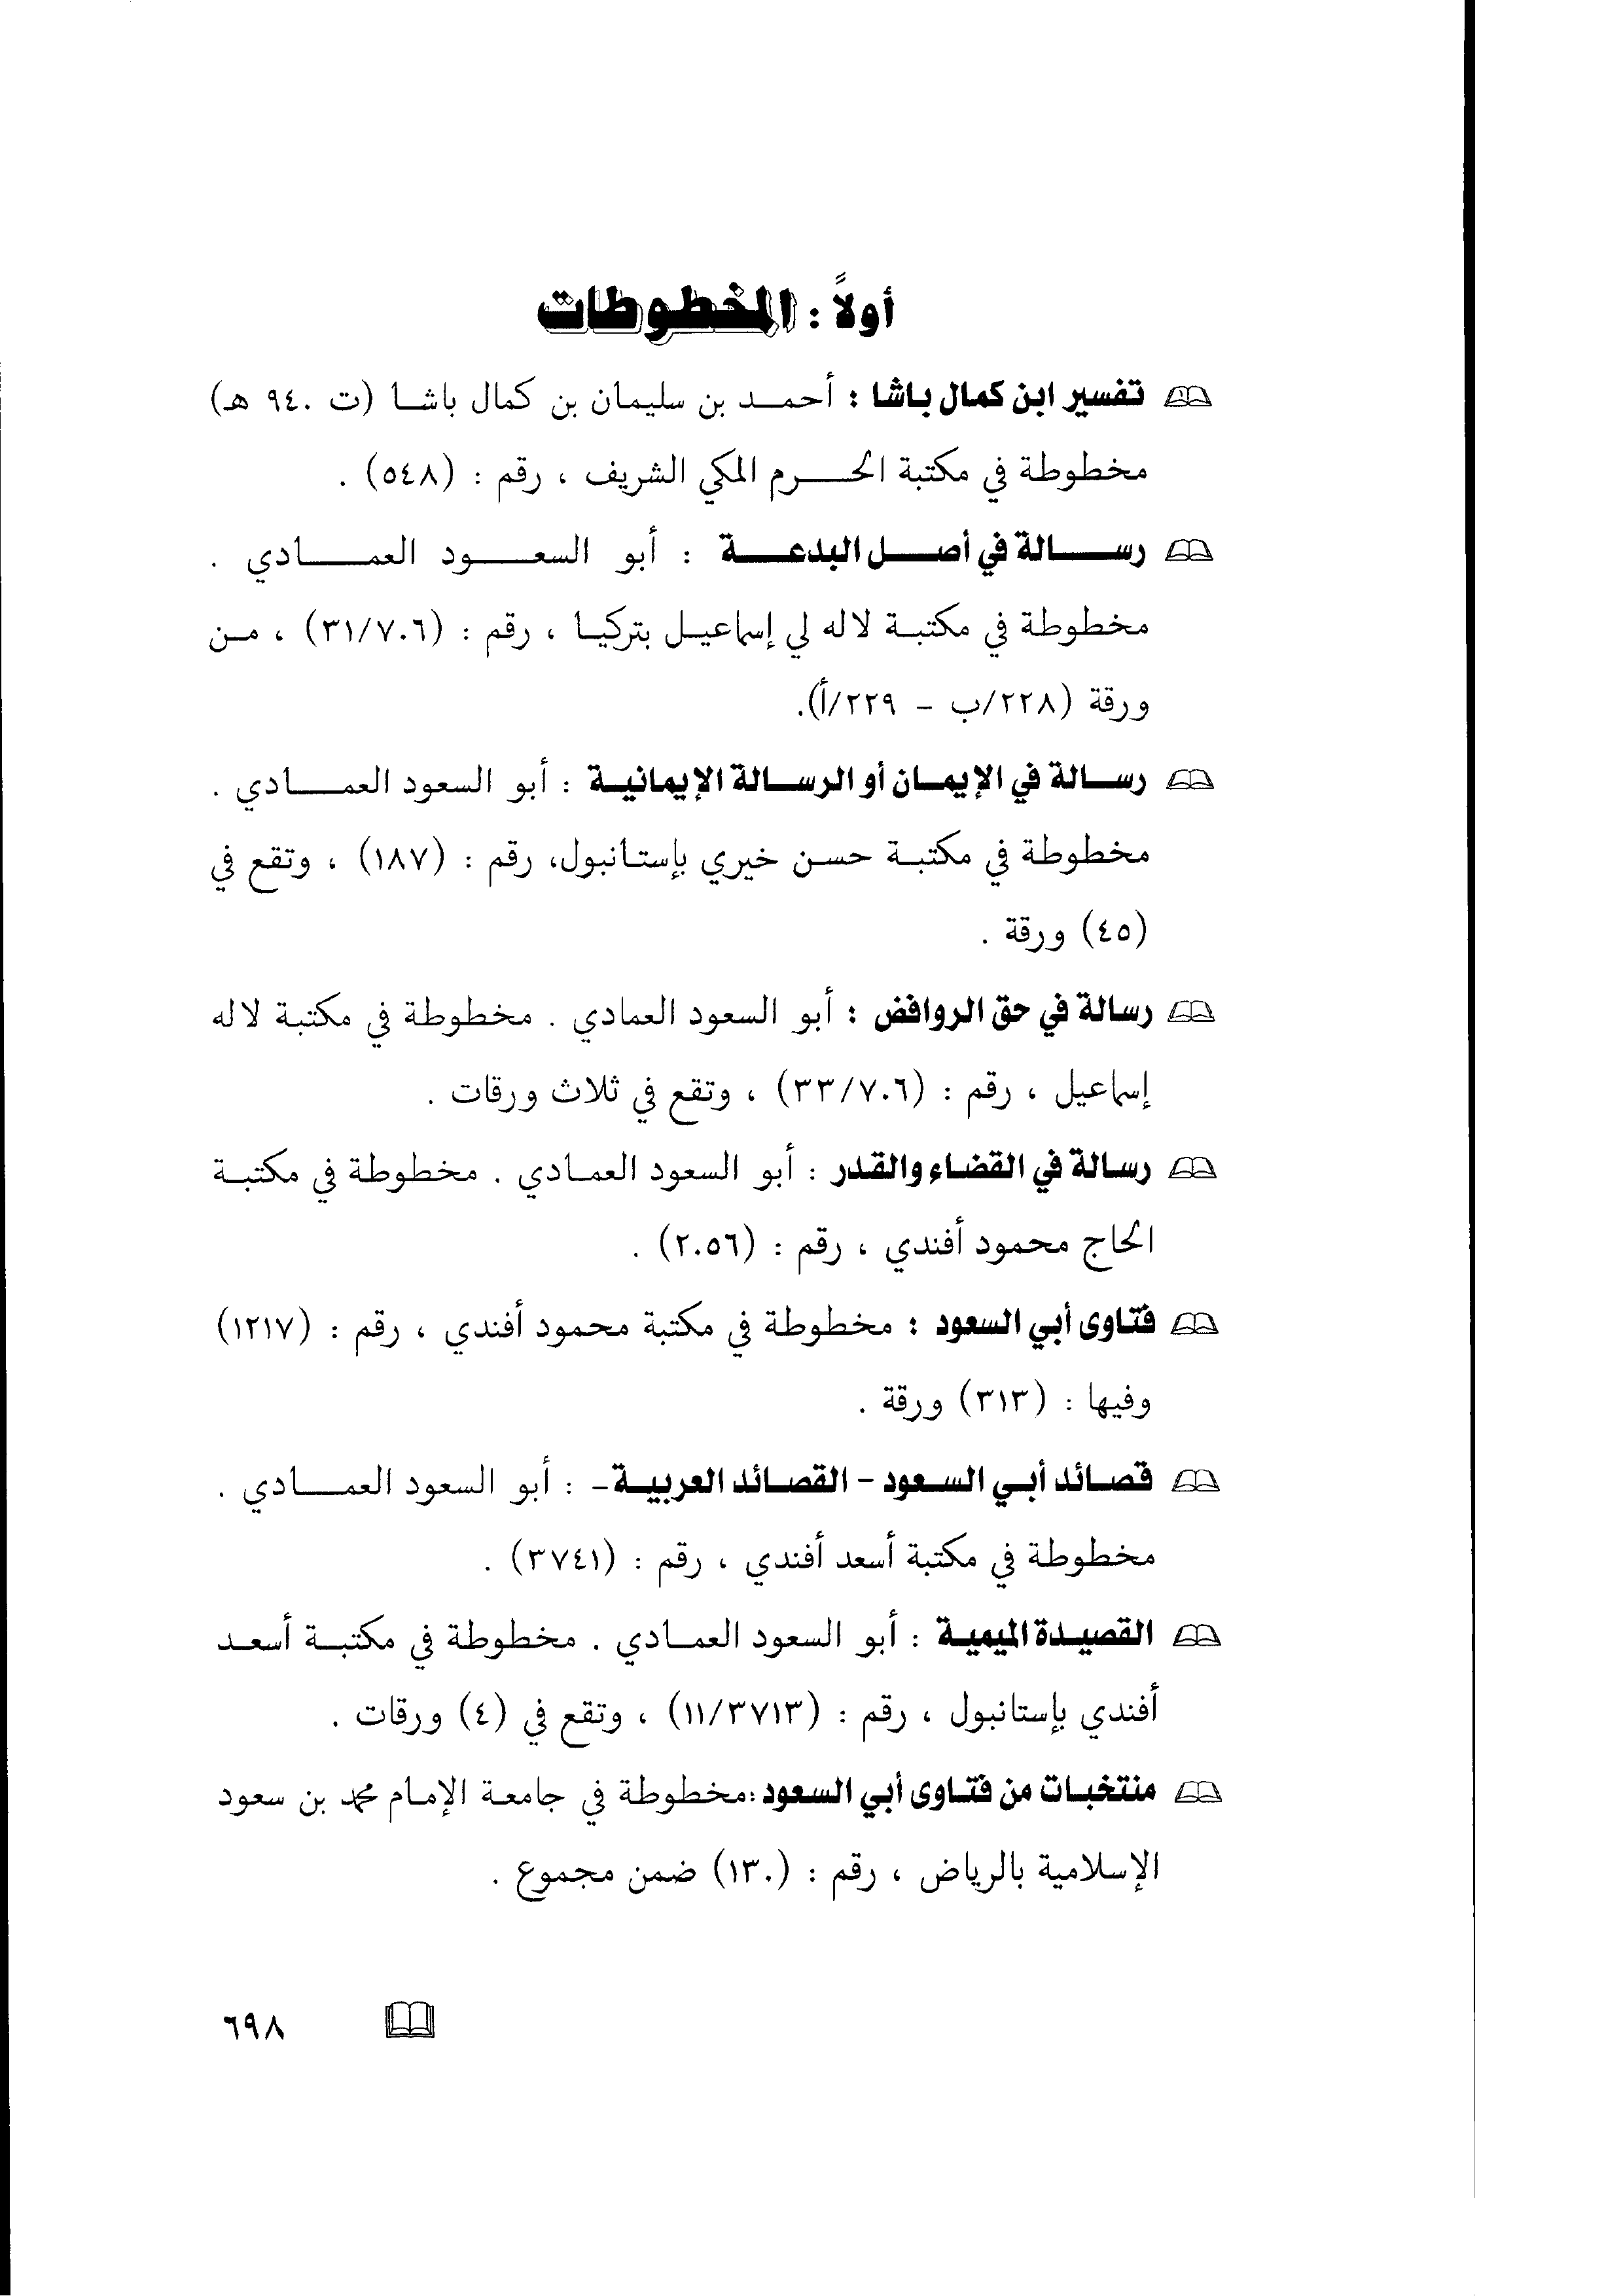 أولاً : المخطوطات
تفسير ابن كمال باشا : أحمد بن سليمان بن كمال باشا (ت ٩٤٠ هـ)
مخطوطة في مكتبة الحرم المكي الشريف ، رقم : (٥٤٨) .
رسالة في أصل البدعة : أبو السعود العمادي .
مخطوطة في مكتبة لاله لي إسماعيل بتركيا ، رقم : (٣١/٧٠٦) ، من
ورقة (٢٢٨/ب - ٢٢٩/أ).
رسالة في الإيمان أو الرسالة الإيمانية : أبو السعود العمادي .
مخطوطة في مكتبة حسن خيري بإستانبول، رقم : (١٨٧) ، وتقع في
(٤٥) ورقة .
رسالة في حق الروافض : أبو السعود العمادي . مخطوطة في مكتبة لاله
إسماعيل ، رقم : (٣٣/٧٠٦) ، وتقع في ثلاث ورقات .
رسالة في القضاء والقدر : أبو السعود العمادي . مخطوطة في مكتبة
الحاج محمود أفندي ، رقم : (٢٠٥٦) .
فتاوى أبي السعود : مخطوطة في مكتبة محمود أفندي ، رقم : (١٢١٧)
وفيها : (٣١٣) ورقة .
قصائد أبي السعود - القصائد العربية - : أبو السعود العمادي .
مخطوطة في مكتبة أسعد أفندي ، رقم : (٣٧٤١) .
القصيدة الميمية : أبو السعود العمادي . مخطوطة في مكتبة أسعد
أفندي بإستانبول ، رقم : (١١/٣٧١٣) ، وتقع في (٤) ورقات .
منتخبات من فتاوى أبي السعود :مخطوطة في جامعة الإمام محمد بن سعود
الإسلامية بالرياض ، رقم : (١٣٠) ضمن مجموع .
٦٩٨